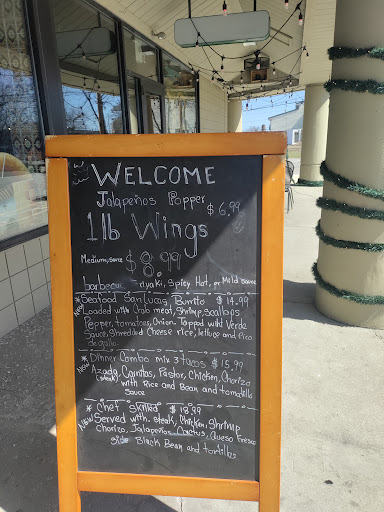 WELCOME
Jalapeños Popper $6.99
1lb Wings
Medium, sauce $8.99 or
barbecue yaki, Spicy Hot, or Mild sauce
*Seafood San Lucas Burrito $14.99
New Loaded with Crab meat, Shrimp, Scallops
Pepper, tomatoes, Onion. Topped with Verde
Sauce, Shredded Cheese rice, lettuce and Pico
de gallo.
*Dinner Combo mix 3 tacos $15.99
New Azada, Carnitas, Pastor, Chicken, Chorizo
(steak) with Rice and Bean and tomatillo
Sauce
*Chef skilled $18.99
New Served with. steak, Chicken, Shrimp
Chorizo, Jalapeños Cactus, Queso Fresco
Side Black Bean and tortillas